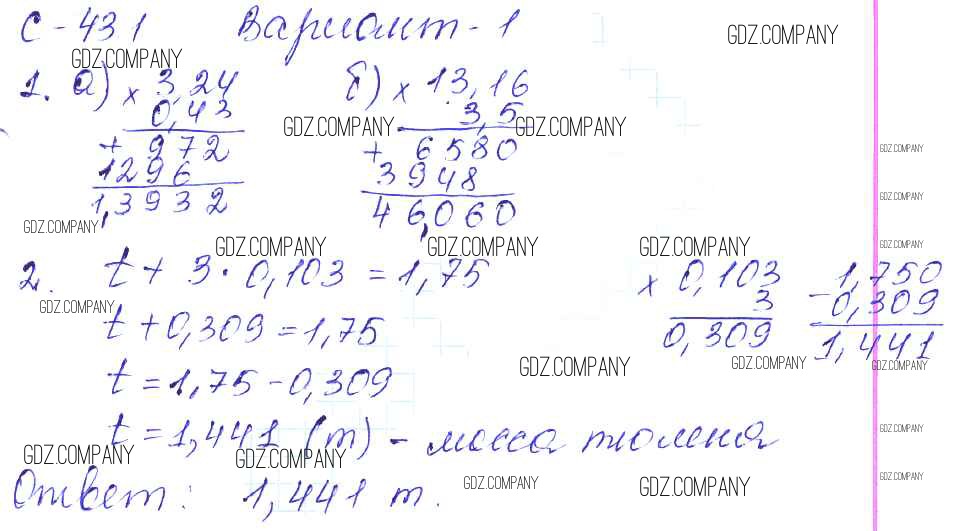 С-431 Вариант-1
GDZ.COMPANY
GDZ.COMPANY
1. а) × 3,24 б) × 13,16
0,43 3,5
GDZ.COMPANY GDZ.COMPANY
+ 972 + 6580
GDZ.COMPANY
1296 3948
1,3932 46,060
GDZ.COMPANY
GDZ.COMPANY
GDZ.COMPANY GDZ.COMPANY GDZ.COMPANY GDZ.COMPANY
2. t + 3 · 0,103 = 1,75 × 0,103 1,750
3 - 0,309
GDZ.COMPANY GDZ.COMPANY
t + 0,309 = 1,75 0,309 1,441
GDZ.COMPANY GDZ.COMPANY GDZ.COMPANY
t = 1,75 - 0,309
t = 1,441 (т) - масса тюленя
GDZ.COMPANY GDZ.COMPANY GDZ.COMPANY
Ответ: 1,441 т.
GDZ.COMPANY GDZ.COMPANY GDZ.COMPANY